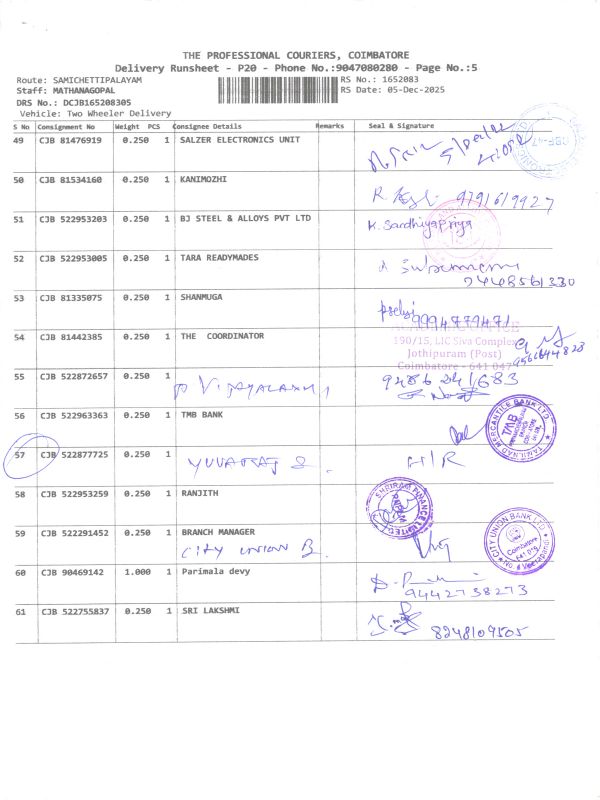 THE PROFESSIONAL COURIERS, COIMBATORE
Delivery Runsheet - P20 - Phone No.:9047080280 - Page No.:5
Route: SAMICHETTIPALAYAM
RS No.: 1652083
Staff: MATHANAGOPAL
RS Date: 05-Dec-2025
DRS No.: DCJB165208305
Vehicle: Two Wheeler Delivery
S No Consignment No Weight PCS Consignee Details Remarks Seal & Signature
49 CJB 81476919 0.250 1 SALZER ELECTRONICS UNIT
50 CJB 81534160 0.250 1 KANIMOZHI 9791619927
51 CJB 522953203 0.250 1 BJ STEEL & ALLOYS PVT LTD K. Sandhiyapriya
52 CJB 522953005 0.250 1 TARA READYMADES
53 CJB 81335075 0.250 1 SHANMUGA 9994779471
54 CJB 81442385 0.250 1 THE COORDINATOR
190/15, LIC Siva Complex
Jothipuram (Post)
Coimbatore - 641 047
55 CJB 522872657 0.250 1 VIJAYALAXMI
56 CJB 522963363 0.250 1 TMB BANK
TAMILNAD MERCANTILE BANK LTD
TMB
57 CJB 522877725 0.250 1 YUVARAJ S. H/R
58 CJB 522953259 0.250 1 RANJITH
SHRIRAM FINANCE LIMITED
59 CJB 522291452 0.250 1 BRANCH MANAGER
CITY UNION B.
CITY UNION BANK LTD
Coimbatore
641 019
60 CJB 90469142 1.000 1 Parimala devy
9442738273
61 CJB 522755837 0.250 1 SRI LAKSHMI
8248109505